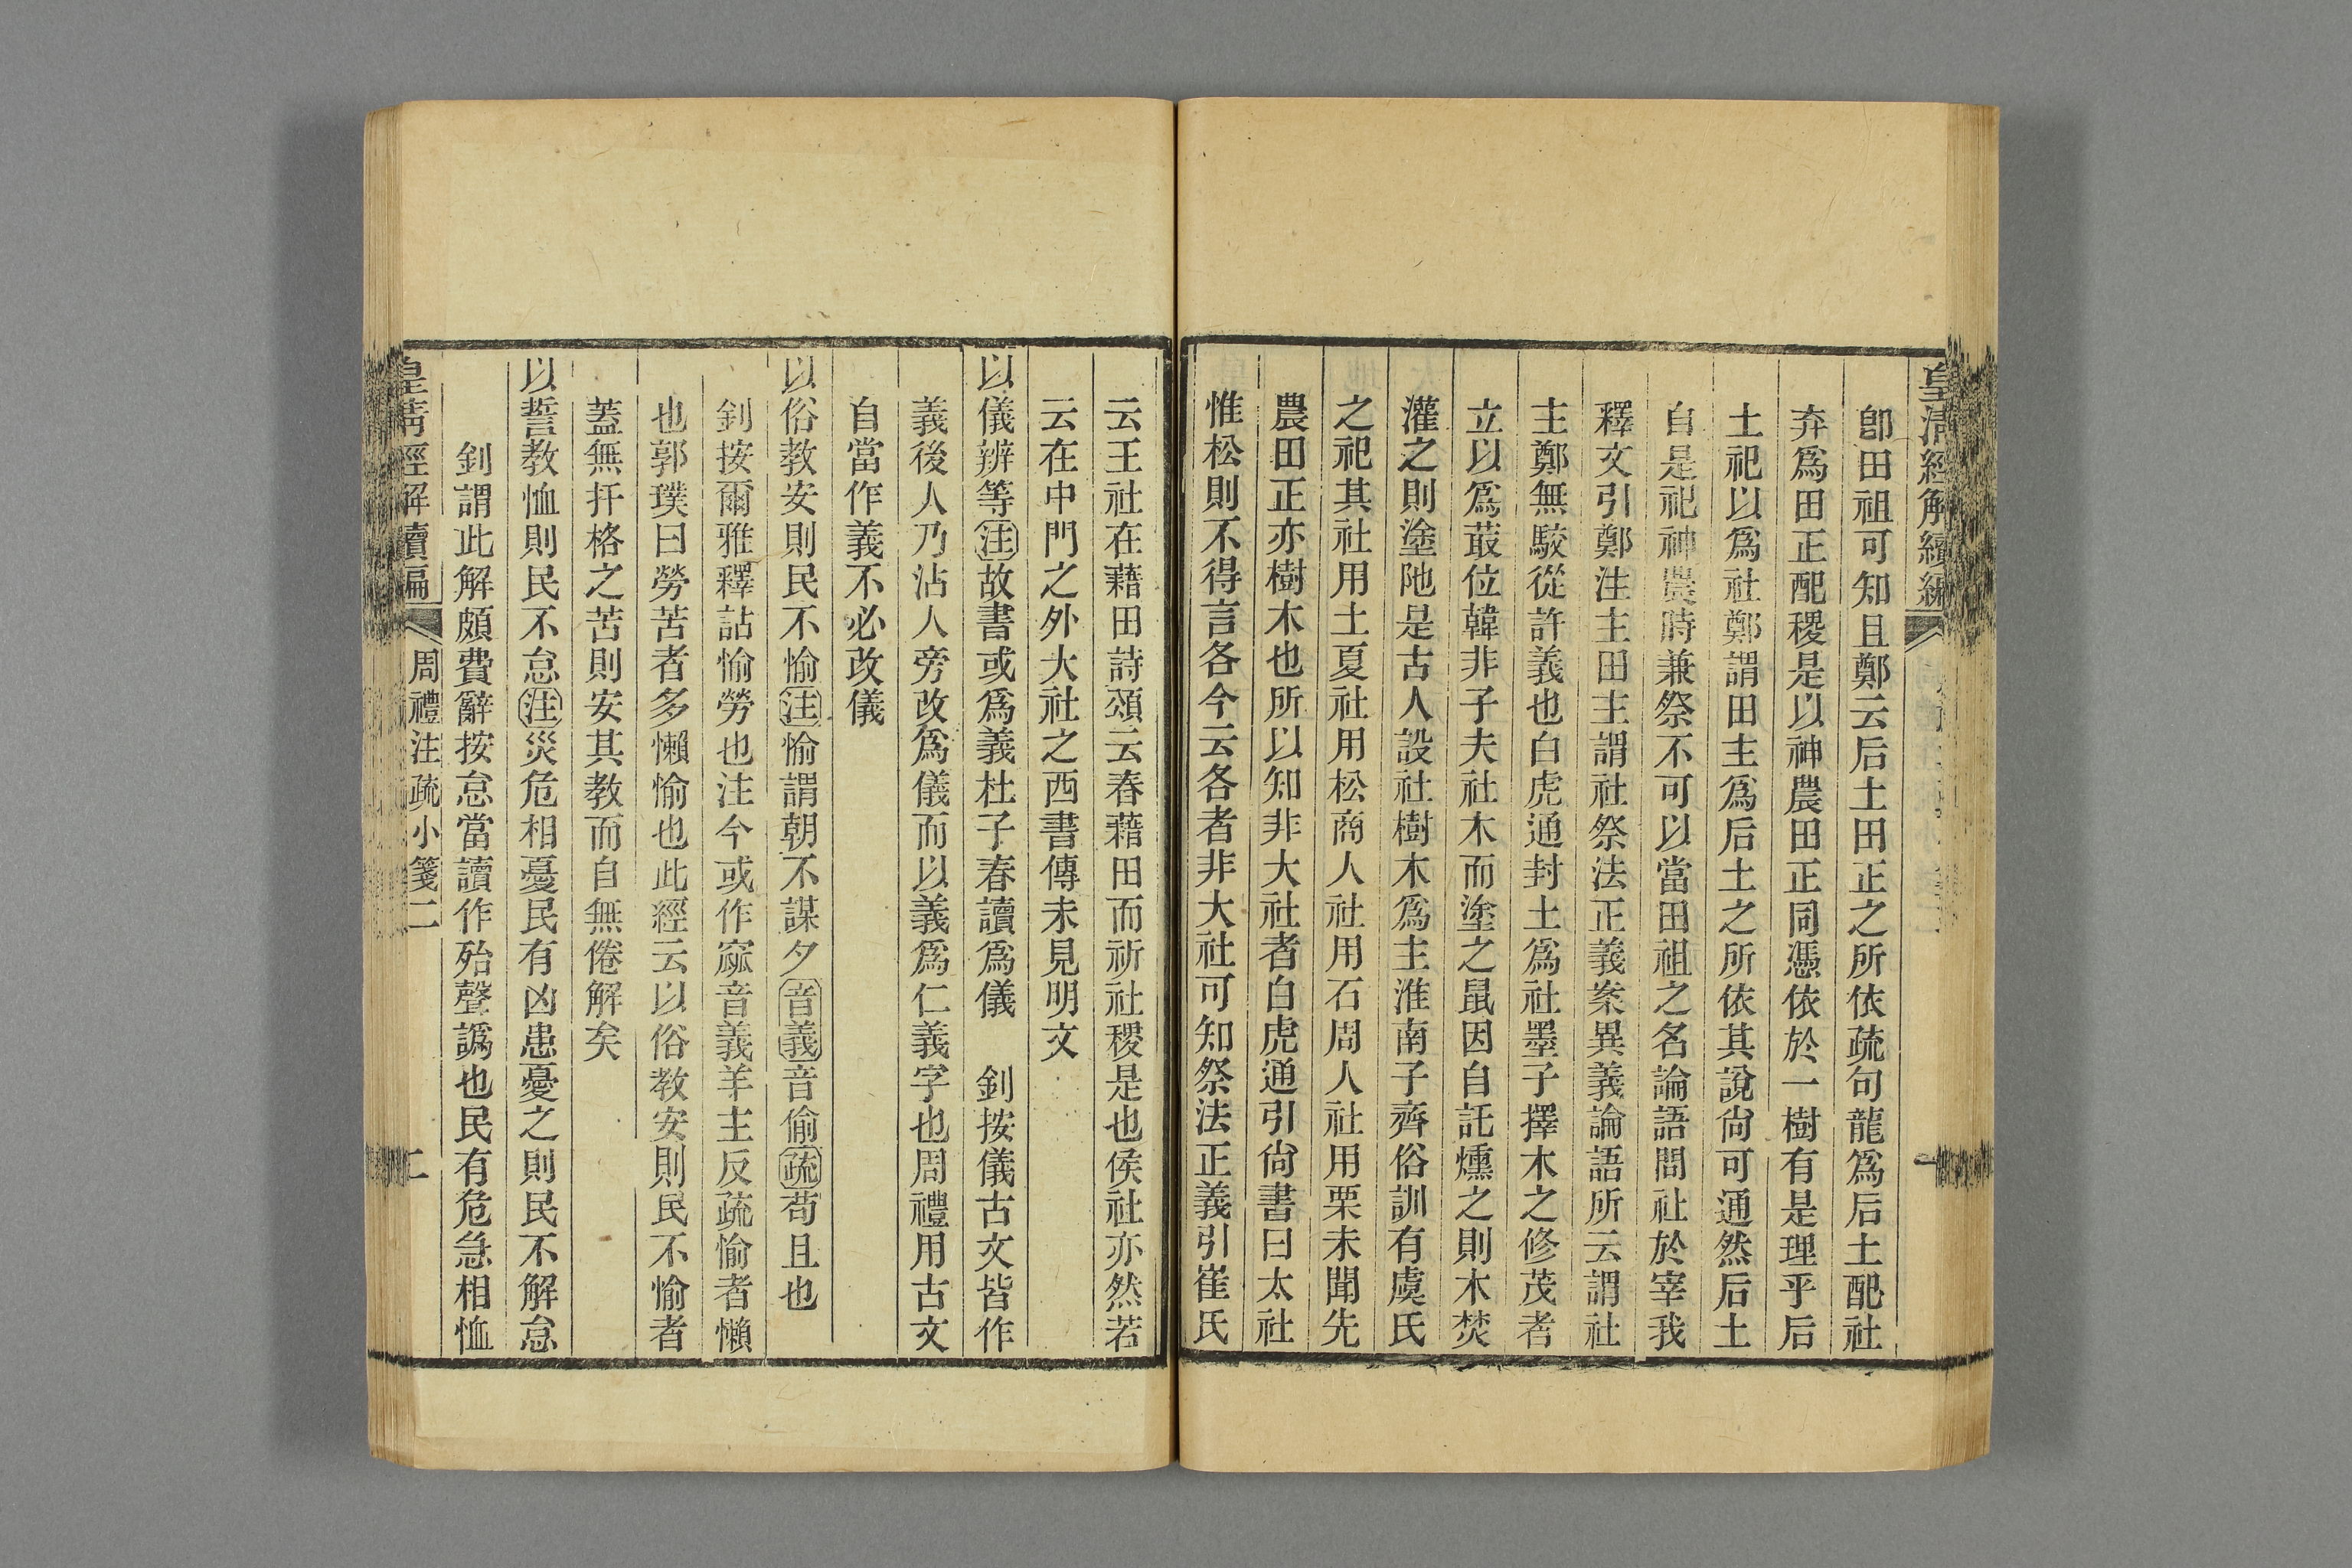 皇清經解續編
卽田祖可知且鄭云后土田正之所依疏句龍爲后土配社
弃爲田正配稷是以神農田正同憑依於一樹有是理乎后
土祀以爲社鄭謂田主爲后土之所依其說尙可通然后土
自是祀神農時兼祭不可以當田祖之名論語問社於宰我
釋文引鄭注主田主謂社祭法正義案異義論語所云謂社
主鄭無駮從許義也白虎通封土爲社墨子擇木之修茂者
立以爲菆位韓非子夫社木而塗之鼠因自託燻之則木焚
灌之則塗阤是古人設社樹木爲主淮南子齊俗訓有虞氏
之祀其社用土夏社用松商人社用石周人社用栗未聞先
農田正亦樹木也所以知非大社者白虎通引尙書曰太社
惟松則不得言各今云各者非大社可知祭法正義引崔氏
云王社在藉田詩頌云春藉田而祈社稷是也侯社亦然若
云在中門之外大社之西書傳未見明文
以儀辨等注故書或爲義杜子春讀爲儀　釗按儀古文皆作
義後人乃沾人旁改爲儀而以義爲仁義字也周禮用古文
自當作義不必改儀
以俗教安則民不愉注愉謂朝不謀夕音義音偷疏苟且也
釗按爾雅釋詁愉勞也注今或作窳音義羊主反疏愉者懶
也郭璞曰勞苦者多懶愉也此經云以俗教安則民不愉者
蓋無扞格之苦則安其教而自無倦解矣
以誓教恤則民不怠注災危相憂民有凶患憂之則民不解怠
釗謂此解頗費辭按怠當讀作殆聲譌也民有危急相恤
皇清經解續編
周禮注疏小箋二
二